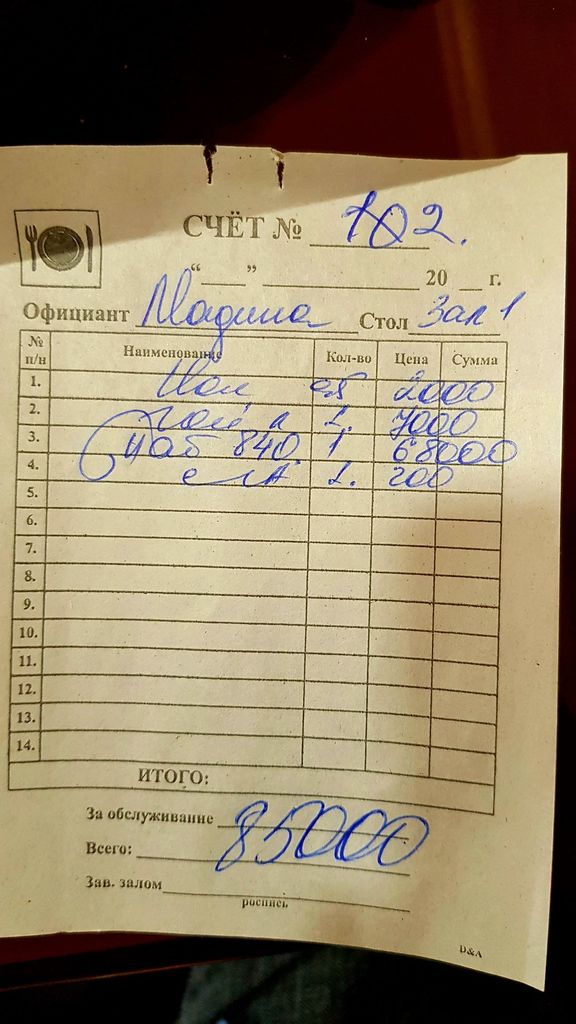 СЧЁТ № 102.
“___” ____________ 20 __ г.
Официант Мадина Стол Зал 1
№ п/н Наименование Кол-во Цена Сумма
1. Нон 2000
2. 1. 7000
3. 840 1 68000
4. 1. 200
5.
6.
7.
8.
9.
10.
11.
12.
13.
14.
ИТОГО:
За обслуживание
Всего: 85000
Зав. залом
роспись
D&A